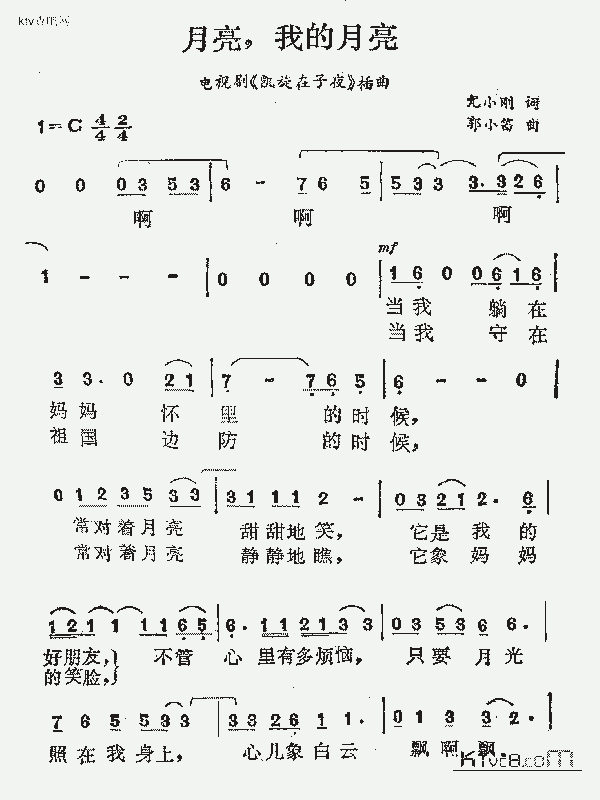 月亮，我的月亮
电视剧《凯旋在子夜》插曲
1=C 4/4 2/4
尤小刚 词
郭小笛 曲
0 0 0 3 5 3 6 - 7 6 5 5 3 3 3. 3 2 6
啊 啊 啊
1 - - - 0 0 0 0 mf 1 6 0 0 6 1 6
当我 躺在
当我 守在
3 3. 0 2 1 7 - 7 6 5 6 - - 0
妈妈 怀里 的时候，
祖国 边防 的时候，
0 1 2 3 5 3 3 3 1 1 1 2 - 0 3 2 1 2. 6
常对着月亮 甜甜地笑， 它是我的
常对着月亮 静静地瞧， 它象妈妈
1 2 1 1 1 1 1 6 5 6. 1 1 2 2 1 3 3 0 3 5 3 6 6.
好朋友，} 不管 心里有多烦恼， 只要月光
的笑脸，}
7 6 5 5 3 3 3 3 2 6 1 1. 0 1 3 3 2
照在我身上， 心儿象白云 飘啊飘，
Ktvc8.com